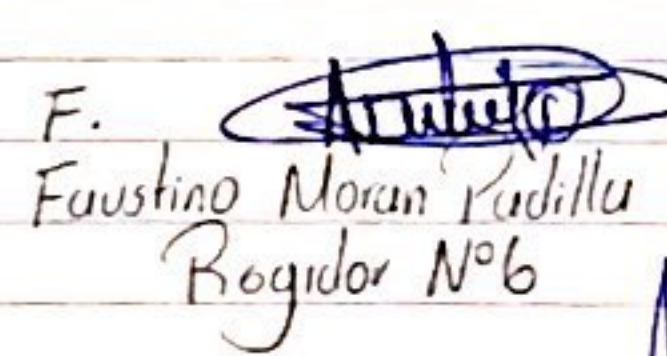 F.
Faustino Moran Padilla
Regidor Nº6